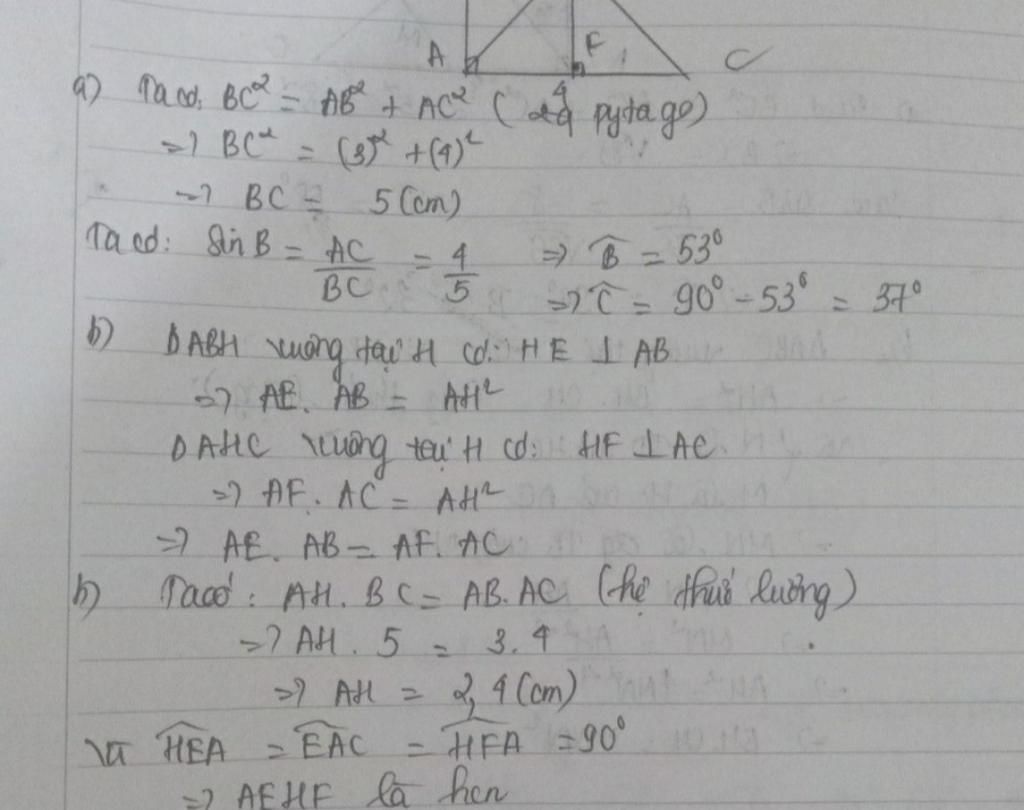 A F C
4
a) Ta có: BC² = AB² + AC² ( pytago)
=> BC² = (3)² + (4)²
=> BC = 5 (cm)
Ta có: Sin B = AC/BC = 4/5 => B̂ = 53⁰
=> Ĉ = 90⁰ - 53⁰ = 37⁰
b) ΔABH vuông tại H có: HE ⊥ AB
=> AE. AB = AH²
ΔAHC vuông tại H có: HF ⊥ AC.
=> AF. AC = AH²
=> AE. AB = AF. AC
b) Ta có: AH. BC = AB. AC (hệ thức lượng)
=> AH. 5 = 3. 4
=> AH = 2,4 (cm)
Vì HEA = EAC = HFA = 90⁰
=> AEHF là hcn